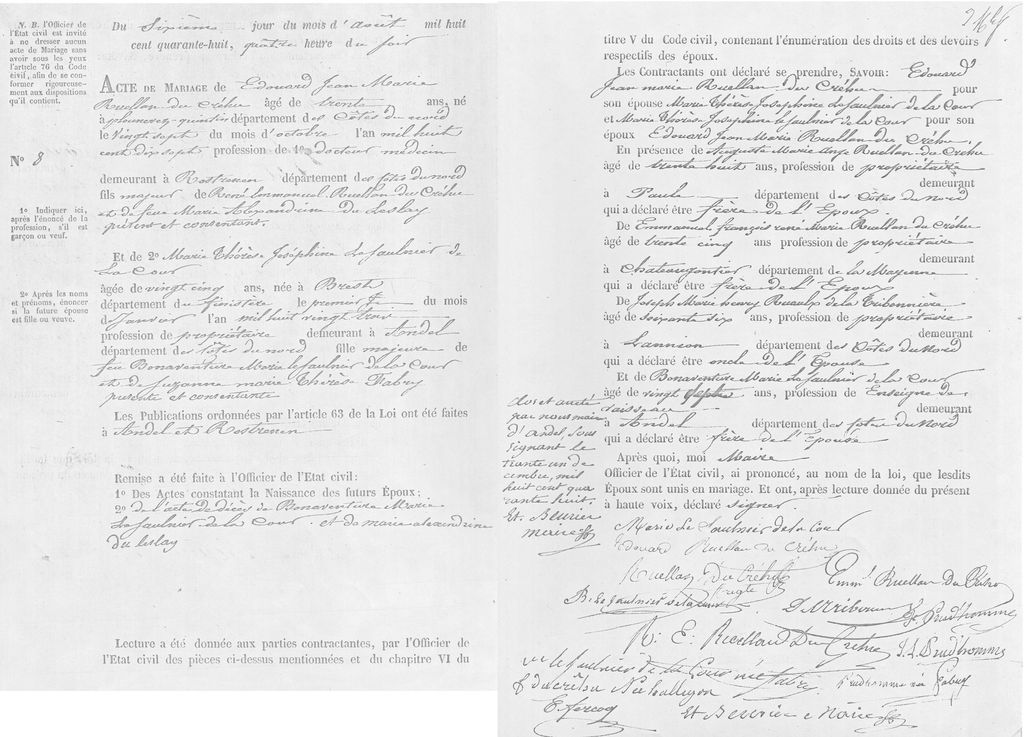 N. B. l'Officier de
l'Etat civil est invité
à ne dresser aucun
acte de Mariage sans
avoir sous les yeux
l'article 76 du Code
civil, afin de se con-
former rigoureuse-
ment aux dispositions
qu'il contient.
N° 8
1° Indiquer ici,
après l'énoncé de la
profession, s'il est
garçon ou veuf.
2° Après les noms
et prénoms, énoncer
si la future épouse
est fille ou veuve.
Du Sixième jour du mois d'août mil huit
cent quarante-huit, quatre heure du soir
ACTE DE MARIAGE de Edouard Jean Marie
Ruellan du Créhu âgé de trente ans, né
à plounevez-quintin département des Côtes du nord
le vingt sept du mois d'octobre l'an mil huit
cent dix sept profession de 1° docteur médecin
demeurant à Rostrenen département des côtes du nord
fils majeur de René Emmanuel Ruellan du Créhu
et de feue Marie Alexandrine du Leslay
présent et consentant.
Et de 2° Marie Thérèse Joséphine Le saulnier de
La Cour
âgée de vingt cinq ans, née à Brest
département du finistère le premier du mois
de Janvier l'an mil huit vingt trois
profession de propriétaire demeurant à Andel
département des côtes du nord fille majeure de
feu Bonaventure Marie le saulnier de la Cour
et de Suzanne marie Thérèse Fabry
présente et consentante
Les Publications ordonnées par l'article 63 de la Loi ont été faites
à Andel et Rostrenen
Remise a été faite à l'Officier de l'Etat civil:
1° Des Actes constatant la Naissance des futurs Époux;
2° de l'acte de décès de Bonaventure Marie
Le saulnier de la Cour et de marie alexandrine
du leslay
Lecture a été donnée aux parties contractantes, par l'Officier de
l'Etat civil des pièces ci-dessus mentionnées et du chapitre VI du
titre V du Code civil, contenant l'énumération des droits et des devoirs
respectifs des époux.
Les Contractants ont déclaré se prendre, SAVOIR: Edouard
Jean marie Ruellan du Créhu pour
son épouse Marie Thérèse Joséphine le saulnier de la Cour
et Marie Thérèse Joséphine le saulnier de la Cour pour son
époux Edouard Jean Marie Ruellan du Créhu.
En présence de Auguste Marie Ange Ruellan du Créhu
âgé de trente huit ans, profession de propriétaire
demeurant
à Paule département des Côtes du nord
qui a déclaré être frère de l'Epoux
De Emmanuel françois rené Marie Ruellan du Créhu
âgé de trente cinq ans profession de propriétaire
demeurant
à Chateaugontier département de la Mayenne
qui a déclaré être frère de l'Epoux
De Joseph Marie henry Ruault de la Tribonnière
âgé de soixante six ans, profession de propriétaire
demeurant
à Lannion département des Côtes du Nord
qui a déclaré être oncle de l'Epouse
Et de Bonaventure Marie le saulnier de la Cour
âgé de vingt ans, profession de Enseigne de
vaisseau demeurant
à Andel département des cotes du Nord
qui a déclaré être frère de l'Epouse
Après quoi, moi Maire
Officier de l'État civil, ai prononcé, au nom de la loi, que lesdits
Époux sont unis en mariage. Et ont, après lecture donnée du présent
à haute voix, déclaré signer.
clos et arrêté
par nous maire
d'andel, sous
signant le
trente un de
cembre, mil
huit cent qua
rante huit.
Et. Beurier
maire
Marie Le Saulnier de la Cour
Edouard Ruellan du Créhu
Ruellan Du Créhu
Emm. Ruellan Du Créhu
B. Le saulnier de la cour
Prudhomme
R. E. Ruellan Du Créhu
J. L. Prud'homme
ve le saulnier de la Cour née fabry
Prudhomme née Fabry
Et Beurier Maire